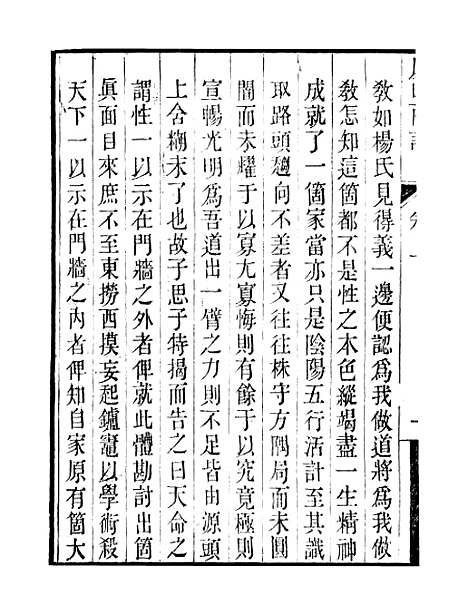 敎如楊氏見得義一邊便認爲我做道將爲我做
敎怎知這箇都不是性之本色縱竭盡一生精神
成就了一箇家當亦只是陰陽五行活計至其識
取路頭趨向不差者又往往株守方隅局而未圓
闇而未耀于以寡尢寡悔則有餘于以究竟極則
宣暢光明爲吾道出一臂之力則不足皆由源頭
上含糊未了也故子思子特揭而告之曰天命之
謂性一以示在門牆之外者俾就此體勘討出箇
眞面目來庶不至東撈西摸妄起鑪竈以學術殺
天下一以示在門牆之內者俾知自家原有箇大